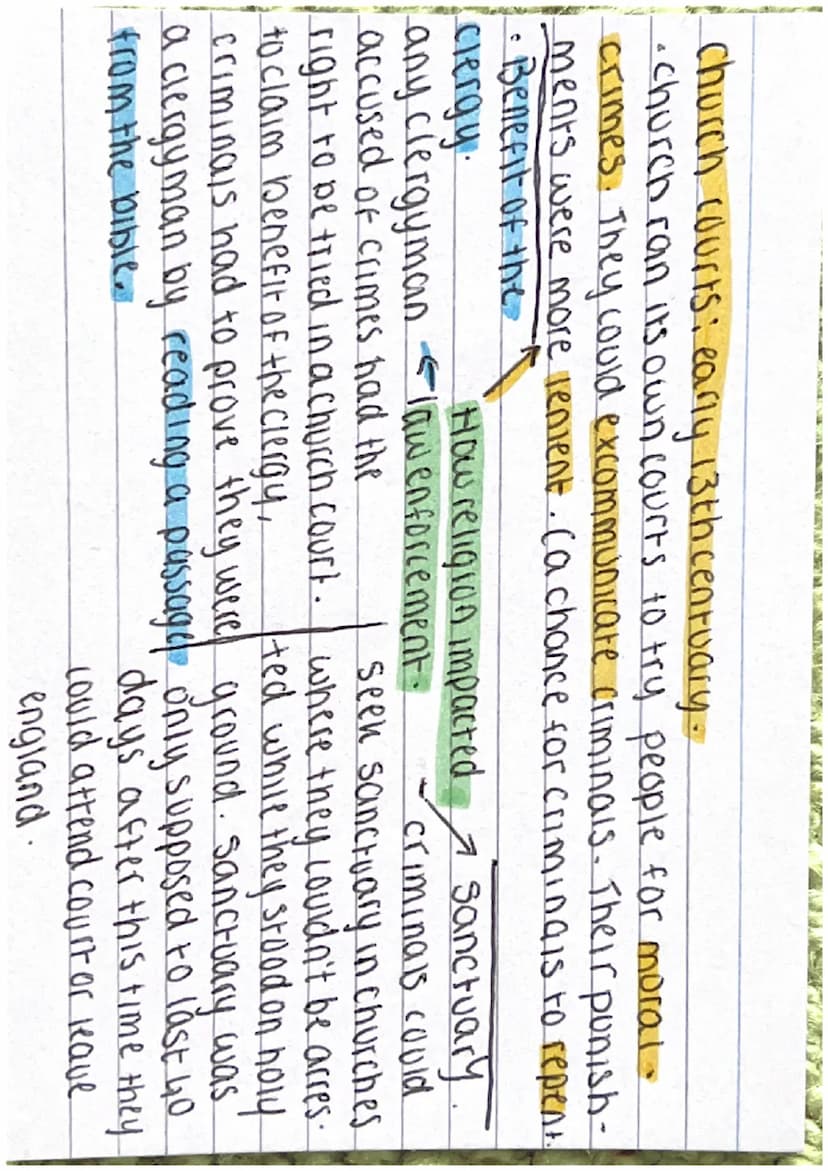 church courts: early 13th centuary.
· church ran its own courts to try people for moral.
crimes. They could excommunicate criminals. Their punish-
ments were more lement. (a chance for criminals to repent.
· Benefit of the
clergy.
any clergyman
accused of crimes had the
right to be tried in a church court.
to claim benefit of the clergy,
criminals had to prove they were
a clergyman by reading a passage
from the bible.
How religion impacted
law enforcement.
Sanctuary.
criminals could
seek sanctuary in churches
where they couldn't be arres-
ted while they stood on holy
ground. Sanctuary was
only supposed to last 40
days after this time they
could attend court or leave
england.